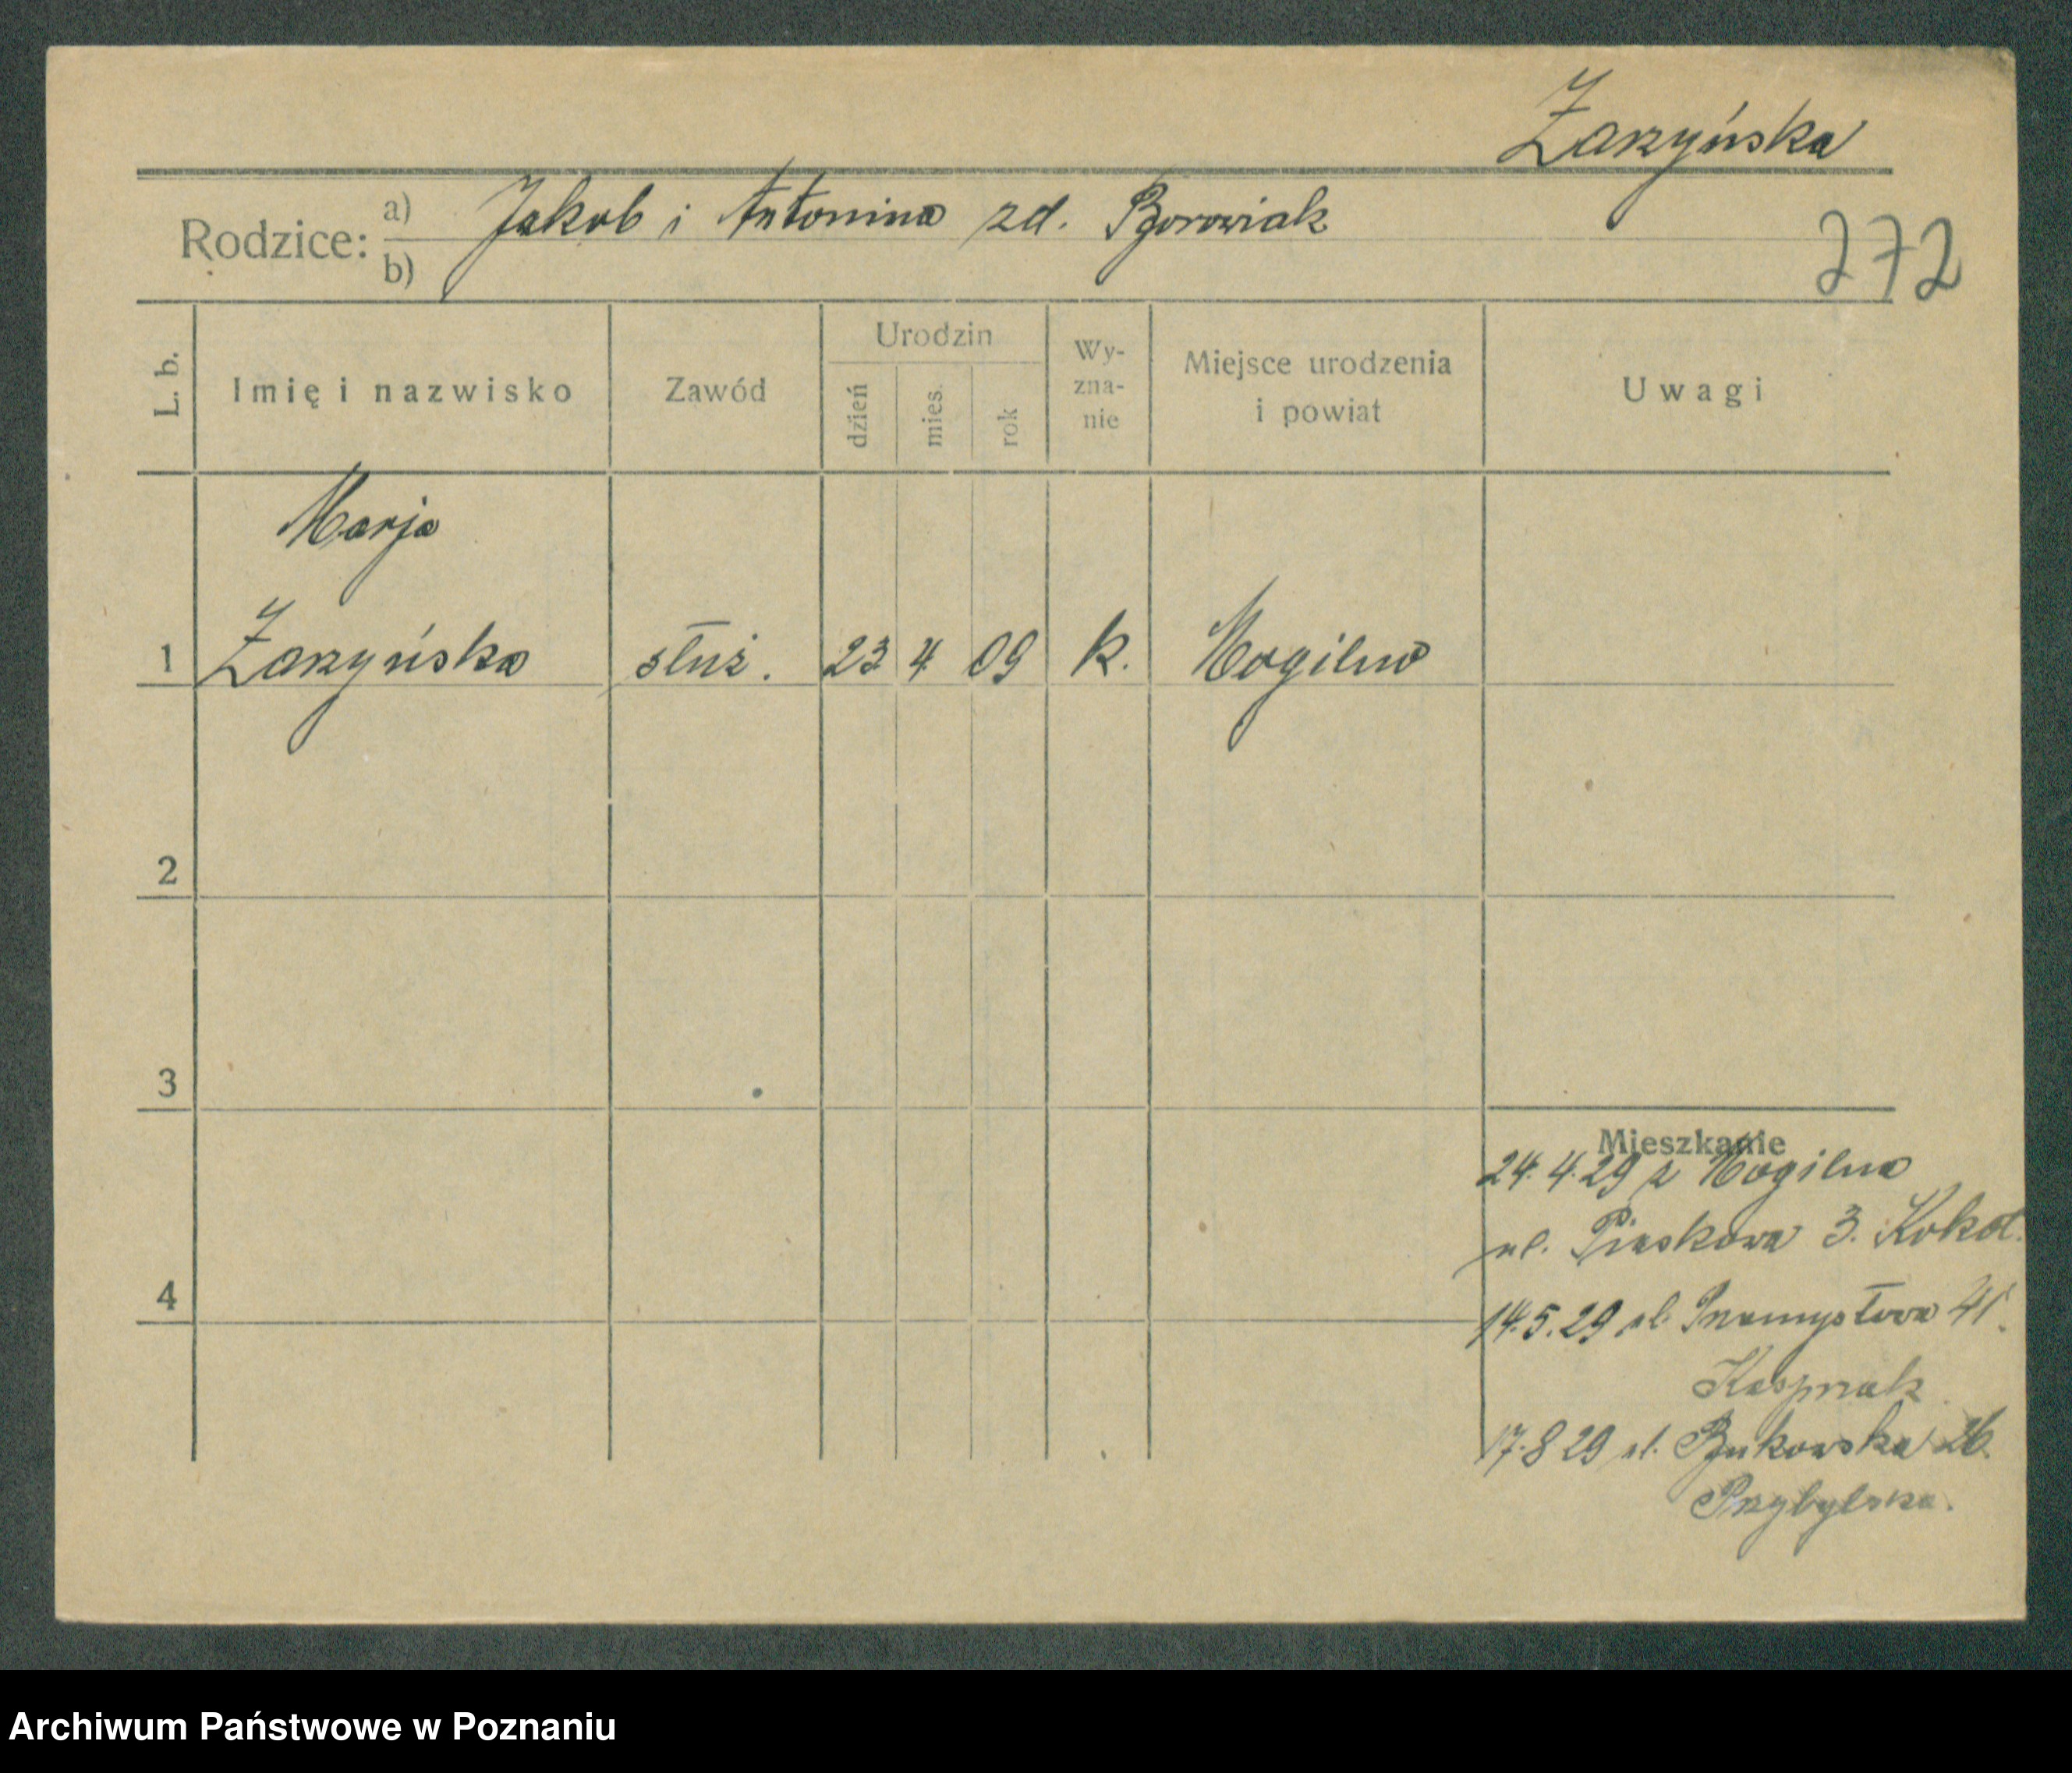 Zarzyńska
Rodzice: a) Jakób i Antonina zd. Borowiak
b)
272
L. b.
Imię i nazwisko
Zawód
Urodzin
dzień
mies.
rok
Wy-
zna-
nie
Miejsce urodzenia
i powiat
Uwagi
Marja
1 Zarzyńska służ. 23 4 09 k. Mogilno
2
3
4
Mieszkanie
24.4.29 z Mogilna
ul. Piaskowa 3. Kokot.
14.5.29 ul. Przemysłowa 41.
Kasprzak
17.8 29 ul. Bukowska 26.
Przybylska.
Archiwum Państwowe w Poznaniu